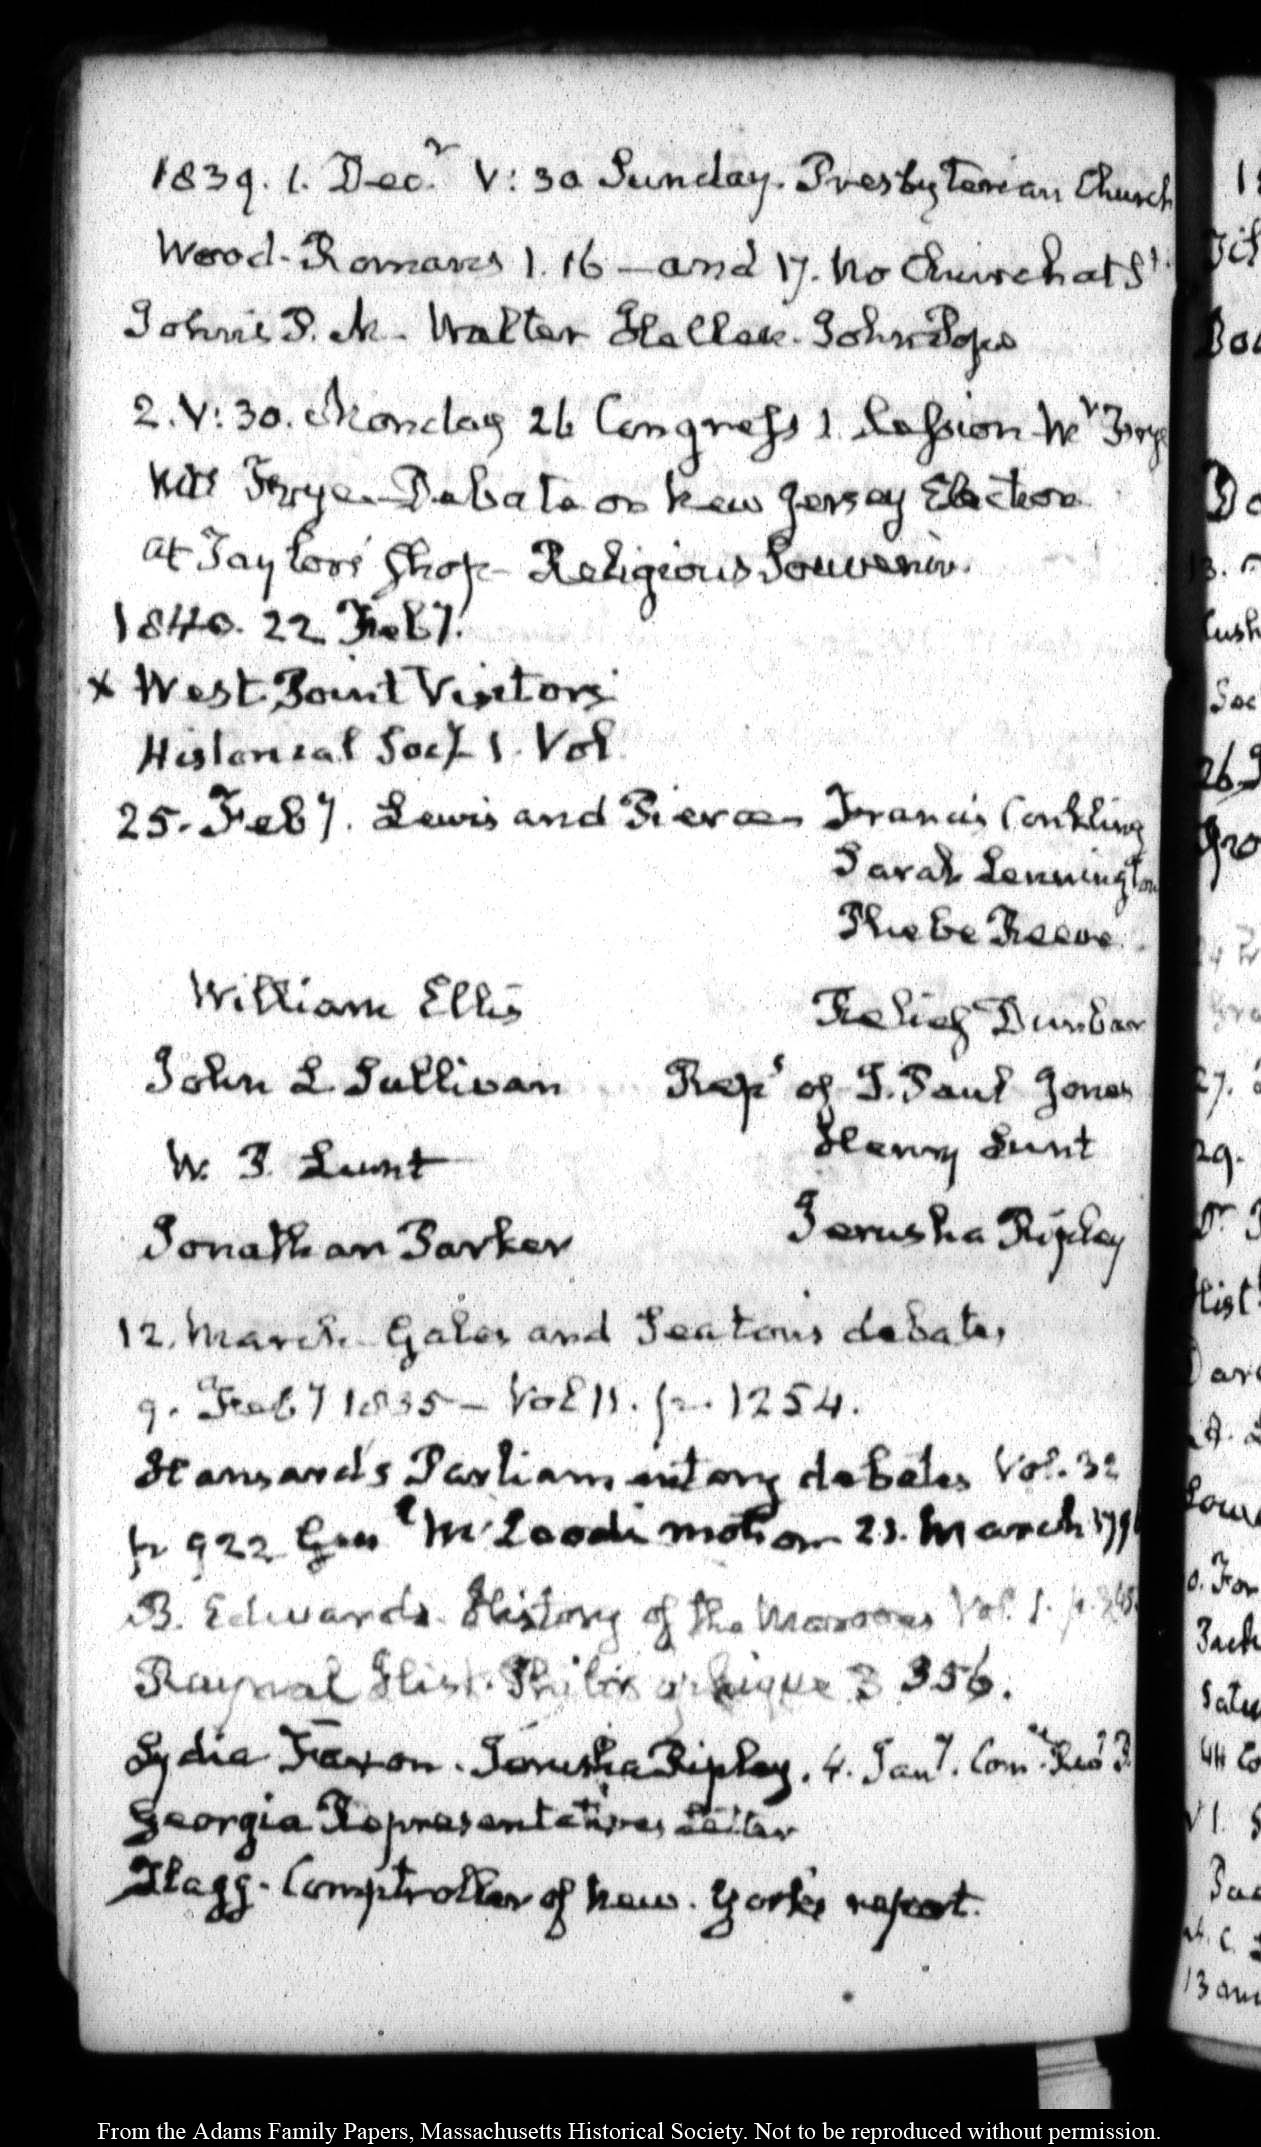 1839. 1. Decr. V: 30 Sunday. Presbyterian Church
Wood. Romans 1. 16 – and 17. No Church at St.
John's P. M. Walter Hellen. John Pope
2. V: 30. Monday 26 Congress 1. Session. Wr Frye
Debate on New Jersey Election
at Taylors' Shop – Religious Souvenir.
1840. 22 Feby.
x West Point Visitors
Historical Socy 1. Vol
25. Feby. Lewis and Pierce – Francis Conkling
Sarah Lennington
Phebe Reeve
William Ellis Relief Dunbar
John L Sullivan Reps of J. Paul Jones
W. P. Lunt Henry Lunt
Jonathan Parker Jerusha Ripley
12. March. Gales and Seaton's debates
9. Feby 1835 – Vol 11. p. 1254.
Hansard's Parliamentary debates Vol. 32
p 922 Genl McLeod's motion 21. March 179
B. Edwards. History of the Maroons Vol. 1. p.
Raynal Hist. Philosophique 3 356.
Lydia Faxon. Jerusha Ripley. 4. Jany. Com.
Georgia Representatives letter
Flagg. Comptroller of New. York's report.
From the Adams Family Papers, Massachusetts Historical Society. Not to be reproduced without permission.